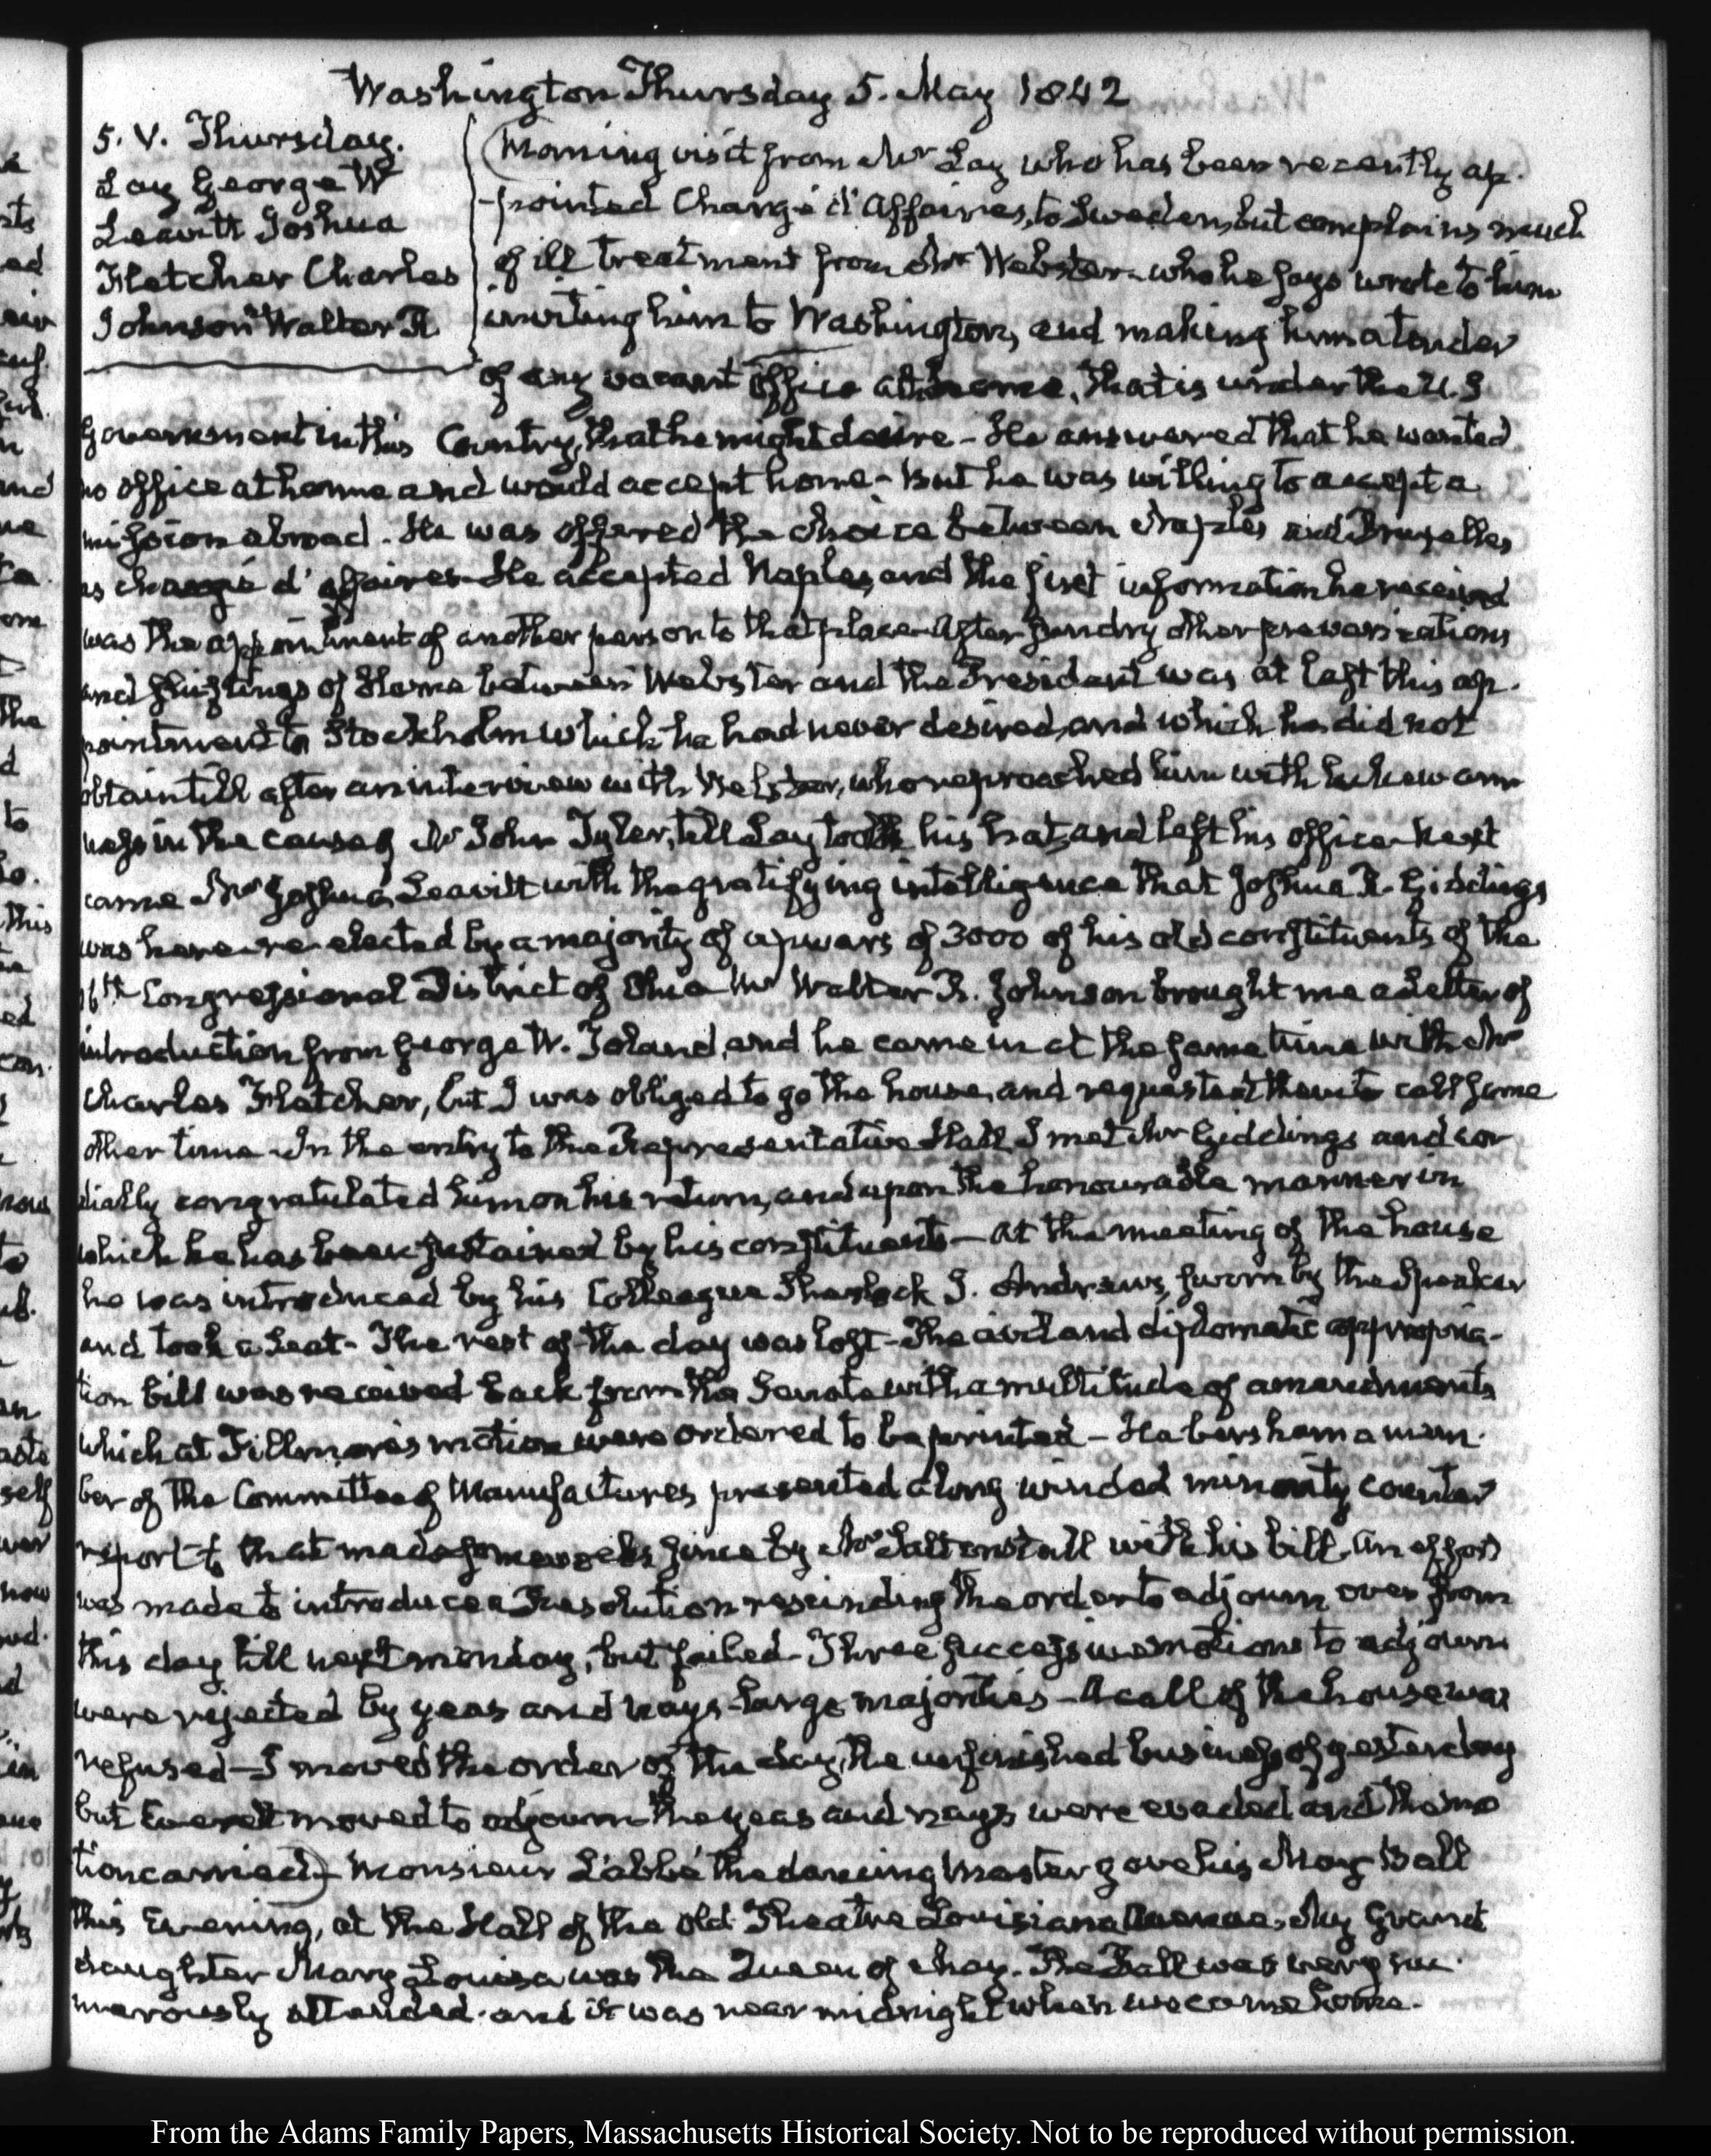 Washington Thursday 5. May 1842
5. V. Thursday.
Lay George W
Leavitt Joshua
Fletcher Charles
Johnson Walter R
Morning visit from Mr Lay who has been recently ap-
-pointed Chargé d'Affaires, to Sweden, but complains much
of ill treatment from Mr Webster who he says wrote to him
inviting him to Washington, and making him a tender
of any vacant office at home, that is under the U.S
Government in this Country, that he might desire - He answered that he wanted
no office at home and would accept none - But he was willing to accept a
mission abroad. He was offered the choice between Naples and Bruxelles
as chargé d'affaires He accepted Naples, and the first information he received
was the appointment of another person to that place After sundry other prevarications
and shiftings of blame between Webster and the President was at last this ap-
pointment to Stockholm which he had never desired, and which he did not
obtain till after an interview with Webster, who reproached him with lukewarm
ness in the cause of Mr John Tyler, till Lay took his hat, and left his office - Next
came Mr Joshua Leavitt with the gratifying intelligence that Joshua R. Giddings
was here re-elected by a majority of upwars of 3000 of his old constituents of the
16th Congressional District of Ohio Mr Walter R. Johnson brought me a letter of
introduction from George W. Toland, and he came in at the same time with Mr
Charles Fletcher, but I was obliged to go the house, and requested them to call some
other time - In the entry to the Representative Hall I met Mr Giddings and cor
dially congratulated him on his return, and upon the honourable manner in
which he has been sustained by his constituents - At the meeting of the house
he was introduced by his Colleague Sherlock J. Andrews, sworn by the Speaker
and took a Seat - The rest of the day was lost - The civil and diplomatic appropria-
tion bill was received back from the Senate with a multitude of amendments
which at Fillmore's motion were ordered to be printed - Habersham a mem-
ber of the Committee of Manufactures presented a long winded minority counter
report to that made some weeks since by Mr Saltonstall with his bill. An effort
was made to introduce a Resolution rescinding the order to adjourn over from
this day till next monday, but failed - Three successive motions to adjourn
were rejected by yeas and nays - large majorities - A call of the house was
refused - I moved the order of the day, the unfinished business of yesterday
but Everett moved to adjourn the yeas and nays were evaded and the mo
tion carried) - Monsieur Labbé the dancing Master gave his May Ball
this Evening, at the Hall of the old Theatre Louisiana Avenue. My Grand
daughter Mary Louisa was the Queen of May. The Ball was very nu-
merously attended. and it was near midnight when we came home.
From the Adams Family Papers, Massachusetts Historical Society. Not to be reproduced without permission.